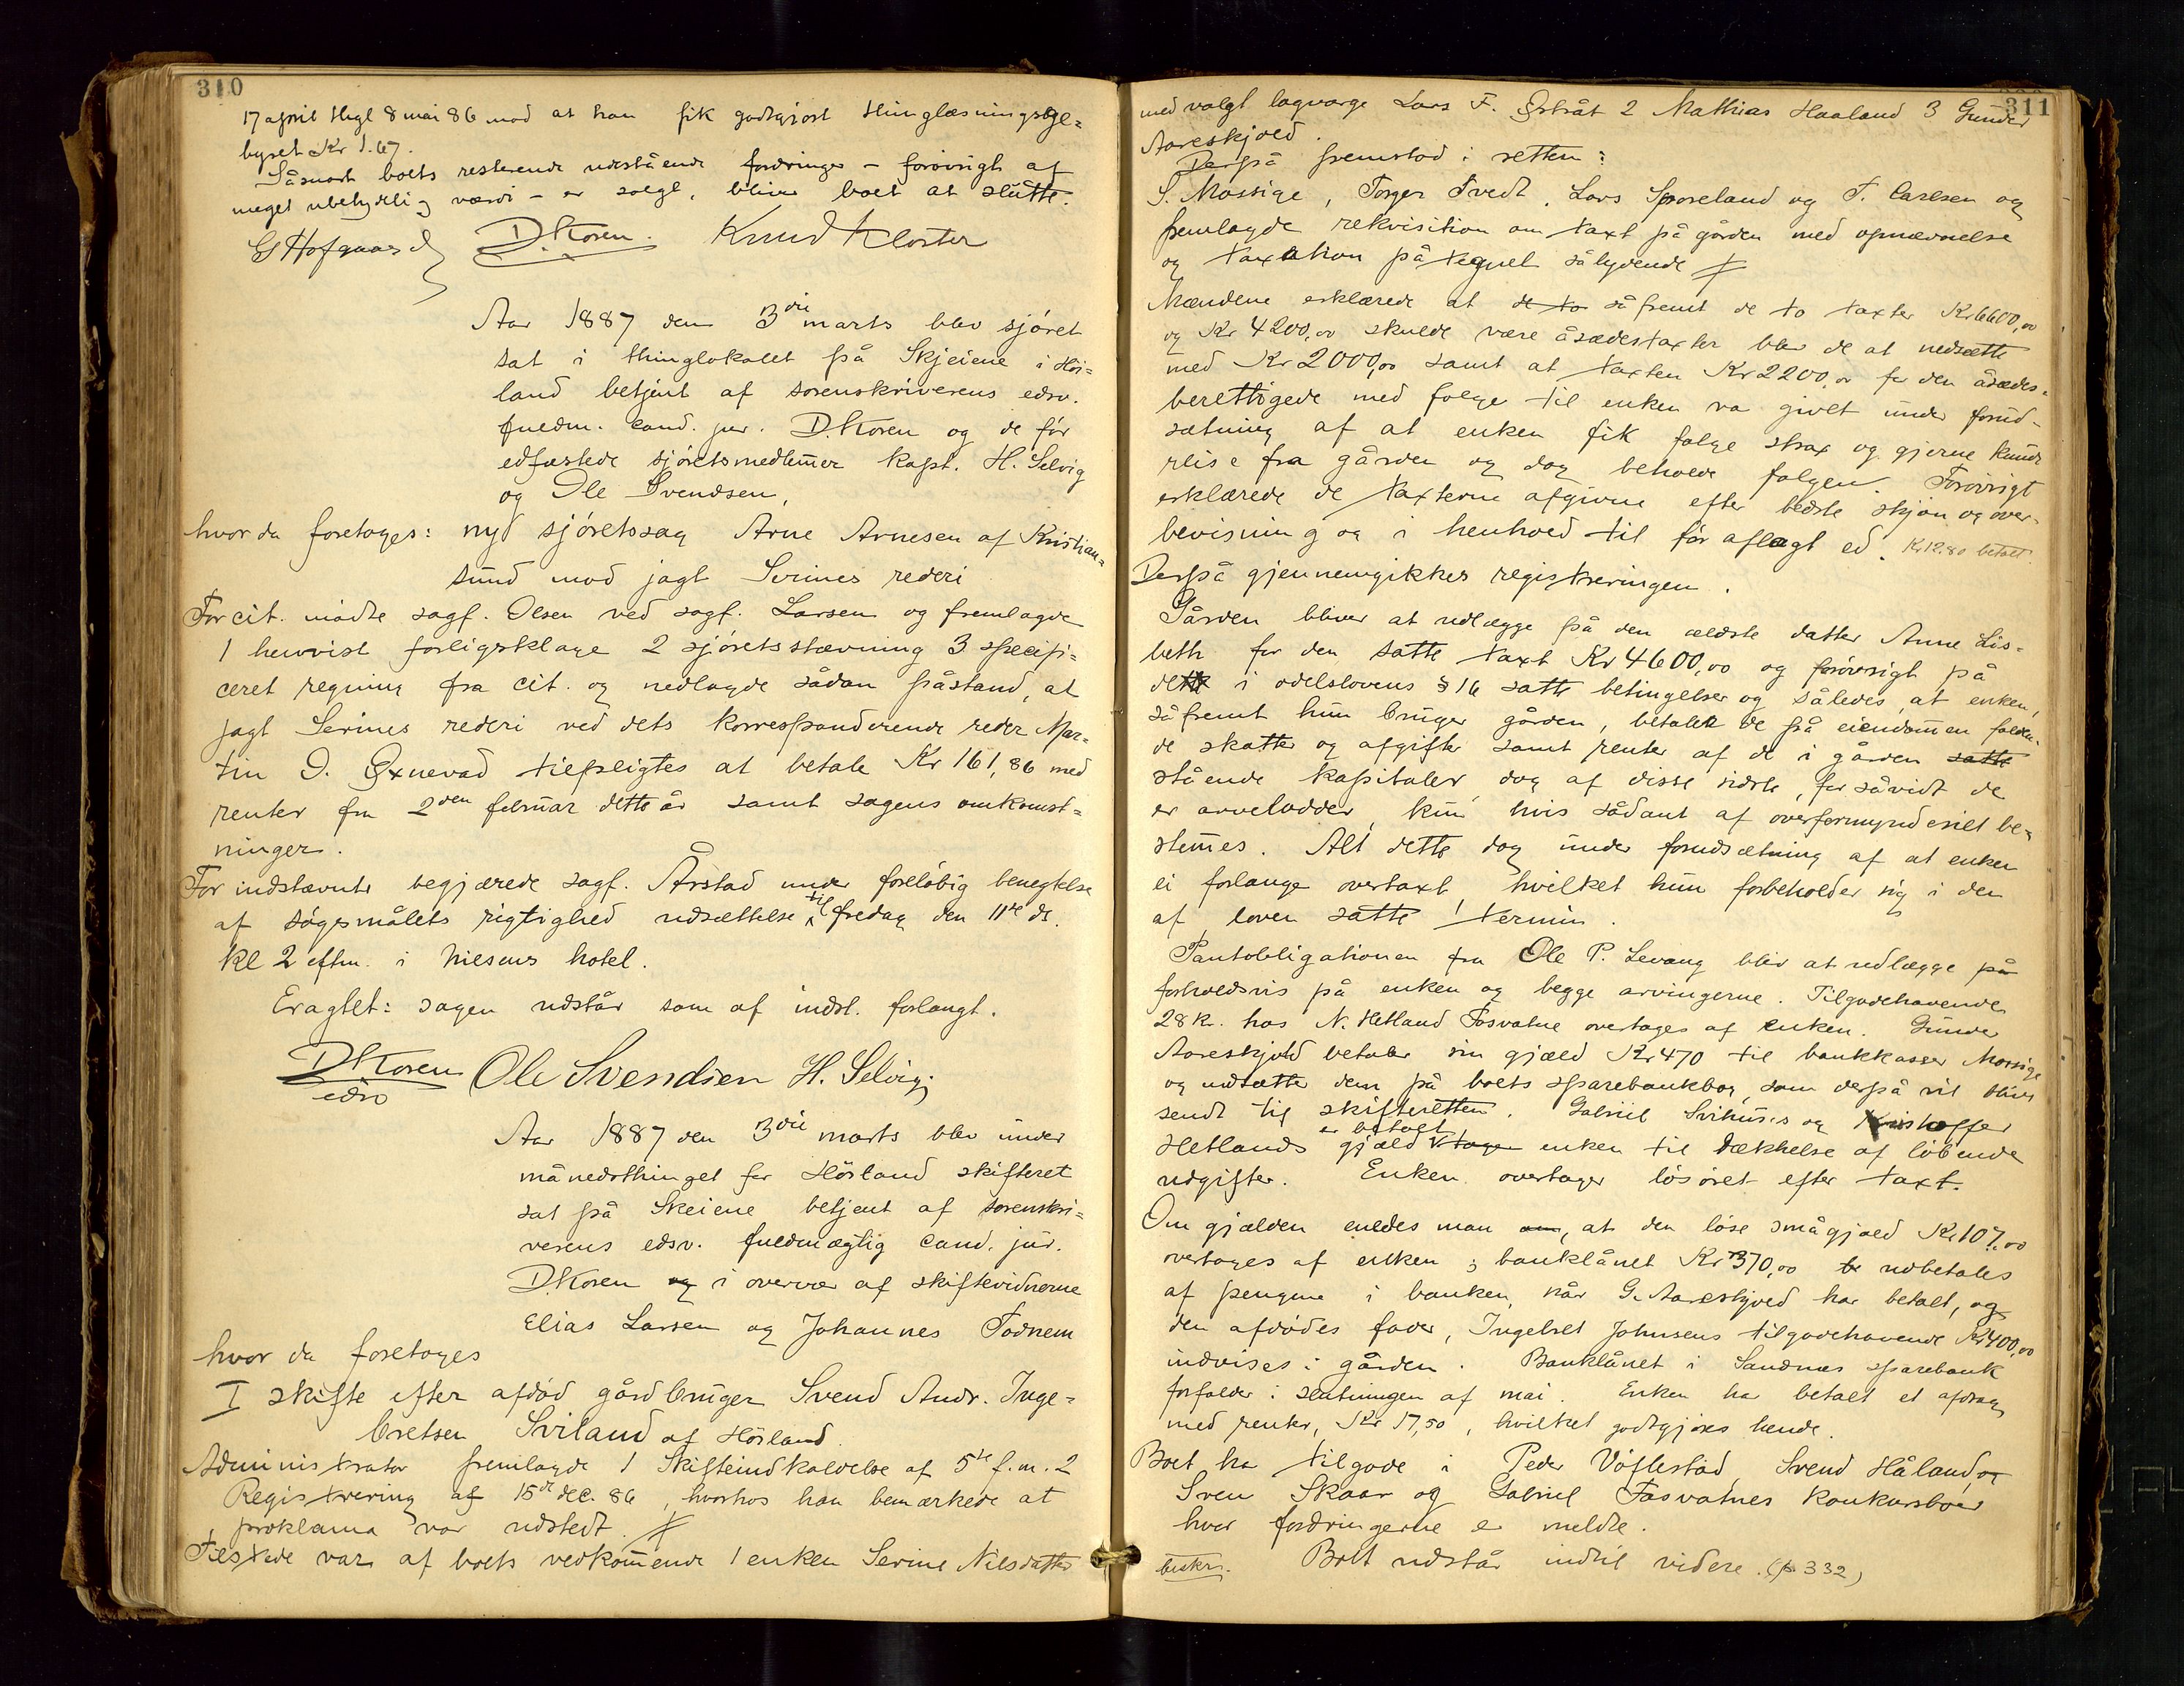 310
17 april thgl 8 mai 86 mod at han fik godtgjort thinglæsningsge=
byret Kr 1.67.
Såsnart boets resterende udestående fordringer – forøvrigt af
meget ubetydelig værdi – er solgt, bliver boet at slutte.
G Hofgaard D. Koren. Knud Kloster
Aar 1887 den 3die marts blev sjøret
sat i thinglokalet på Skjeiene i Høi=
land betjent af sorenskriverens edsv.
fuldm. cand. jur. D. Koren og de før
edfæstede sjøretsmedlemmer kapt. H. Selvig
og Ole Svendsen,
hvor da foretoges: nyd sjøretssag Arne Arnesen af Kristian=
sund mod jagt Serines rederi
For cit. mødte sagf. Olsen ved sagf. Larsen og fremlagde
1 henvist forligsklage 2 sjøretsstævning 3 specifi=
ceret regning fra cit. og nedlagde sådan påstand, at
jagt Serines rederi ved dets korresponderende reder Mar=
tin D. Øxnevad tilpligtes at betale Kr 161,86 med
renter fra 2den februar dette år samt sagens omkost=
ninger.
For indstævnte begjærede sagf. Årstad under foreløbig benegtelse
af søgsmålets rigtighed udsættelse til fredag den 11te ds.
kl 2 eftm. i Nielsens hotel.
Eragtet: sagen udstår som af indst. forlangt.
D Koren Ole Svendsen H. Selvig
edsv
Aar 1887 den 3die marts blev under
månedsthinget for Høiland skifteret
sat på Skeiene betjent af sorenskri=
verens edsv. fuldmægtig cand. jur.
D. Koren og i overvær af skiftevidnerne
Elias Larsen og Johannes Todnem
hvor da foretoges
I skifte efter afdød gårdbruger Svend Andr. Inge=
bretsen Sviland af Høiland.
Administrator fremlagde 1 Skifteindkaldelse af 5te f.m. 2
Registrering af 15de dec. 86, hvorhos han bemærkede at
proklama var udstedt.
Tilstede var af boets vedkommende 1 enken Serine Nilsdatter
311
med valgt lagværge Lars F. Østråt 2 Mathias Haaland 3 Gunder
Aareskjold.
Derpå fremstod i retten:
S. Mossige, Torger Tvedt, Lars Sporeland og T. Carlsen og
fremlagde rekvisition om taxt på gården med opnævnelse
og taxation påtegnet sålydende
Mændene erklærede at de to såfremt de to taxter Kr 6600,00
og Kr 4200,00 skulde være åsædestaxter blev de at nedsætte
med Kr 2000,00 samt at taxten Kr 2200,00 for den åsædes=
berettigede med folge til enken va givet under forud=
sætning af at enken fik folge strax og gjerne kunde
reise fra gården og dog beholde folgen. Forøvrigt
erklærede de taxterne afgivne efter bedste skjøn og over=
bevisning og i henhold til før aflagt ed. Kr 12.80 betalt
Derpå gjennemgikkes registreringen.
Gården bliver at udlægge på den ældste datter Anne Lis=
beth for den satte taxt Kr 4600,00 og forøvrigt på
dette i odelslovens § 16 satte betingelser og således, at enken,
såfremt hun bruger gården, betaler de på eiendommen falden=
de skatter og afgifter samt renter af de i gården satte
stående kapitaler dog af disse sidste, for såvidt de
er arvelodder, kun hvis sådant af overformynderiet be=
stemmes. Alt dette dog under forudsætning af at enken
ei forlange overtaxt, hvilket hun forbeholder sig i den
af loven satte termin.
Pantobligationen fra Ole P. Levang blev at udlægge på
forholdsvis på enken og begge arvingerne. Tilgodehavende
28 Kr. hos N. Hetland Fosvatne overtages af enken. Gunder
Aareskjold betaler sin gjæld Kr 470 til bankkasser Mossige
og indsætte dem på boets sparebankbog, som derpå vil blive
sendt til skifteretten. Gabriel Svihuses og Kristoffer
Hetlands gjæld er betalt tager enken til dækkelse af løbende
udgifter. Enken overtager løsøret efter taxt.
Om gjælden enedes man om, at den løse smågjæld Kr 107.00
overtages af enken; banklånet Kr 370,00 be udbetales
af pengene i banken, når G. Aareskjold har betalt, og
den afdødes fader, Ingebret Johnsens tilgodehavende Kr 400,00
indvises i gården. Banklånet i Sandnæs sparebank
forfalder i slutningen af mai. Enken har betalt et afdrag
med renter, Kr 17,50, hvilket godtgjøres hende.
Boet har tilgode i Peder Vølstad, Svend Håland, og
Sven Skaar og Gabriel Fosvatnes konkursboer
hvor fordringerne er meldte.
beskr. Boet udstår indtil videre. (p. 332)